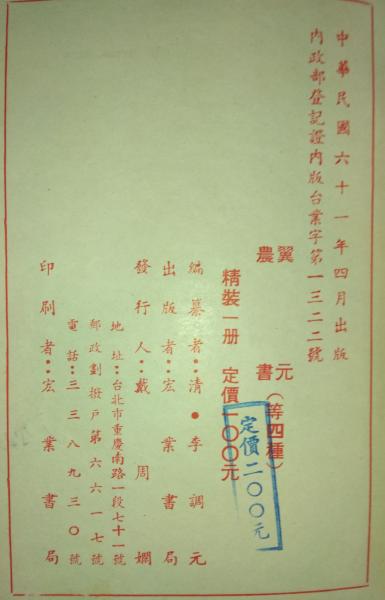 中華民國六十一年四月出版
內政部登記證內版台業字第一三二二號
翼元
農書(等四種)
精裝一册 定價一〇〇元
定價二〇〇元
編纂者:清●李調元
出版者:宏業書局
發行人:戴周嫻
地址:台北市重慶南路一段七十一號
郵政劃撥戶第六六一七號
電話:三三八九三〇號
印刷者:宏業書局